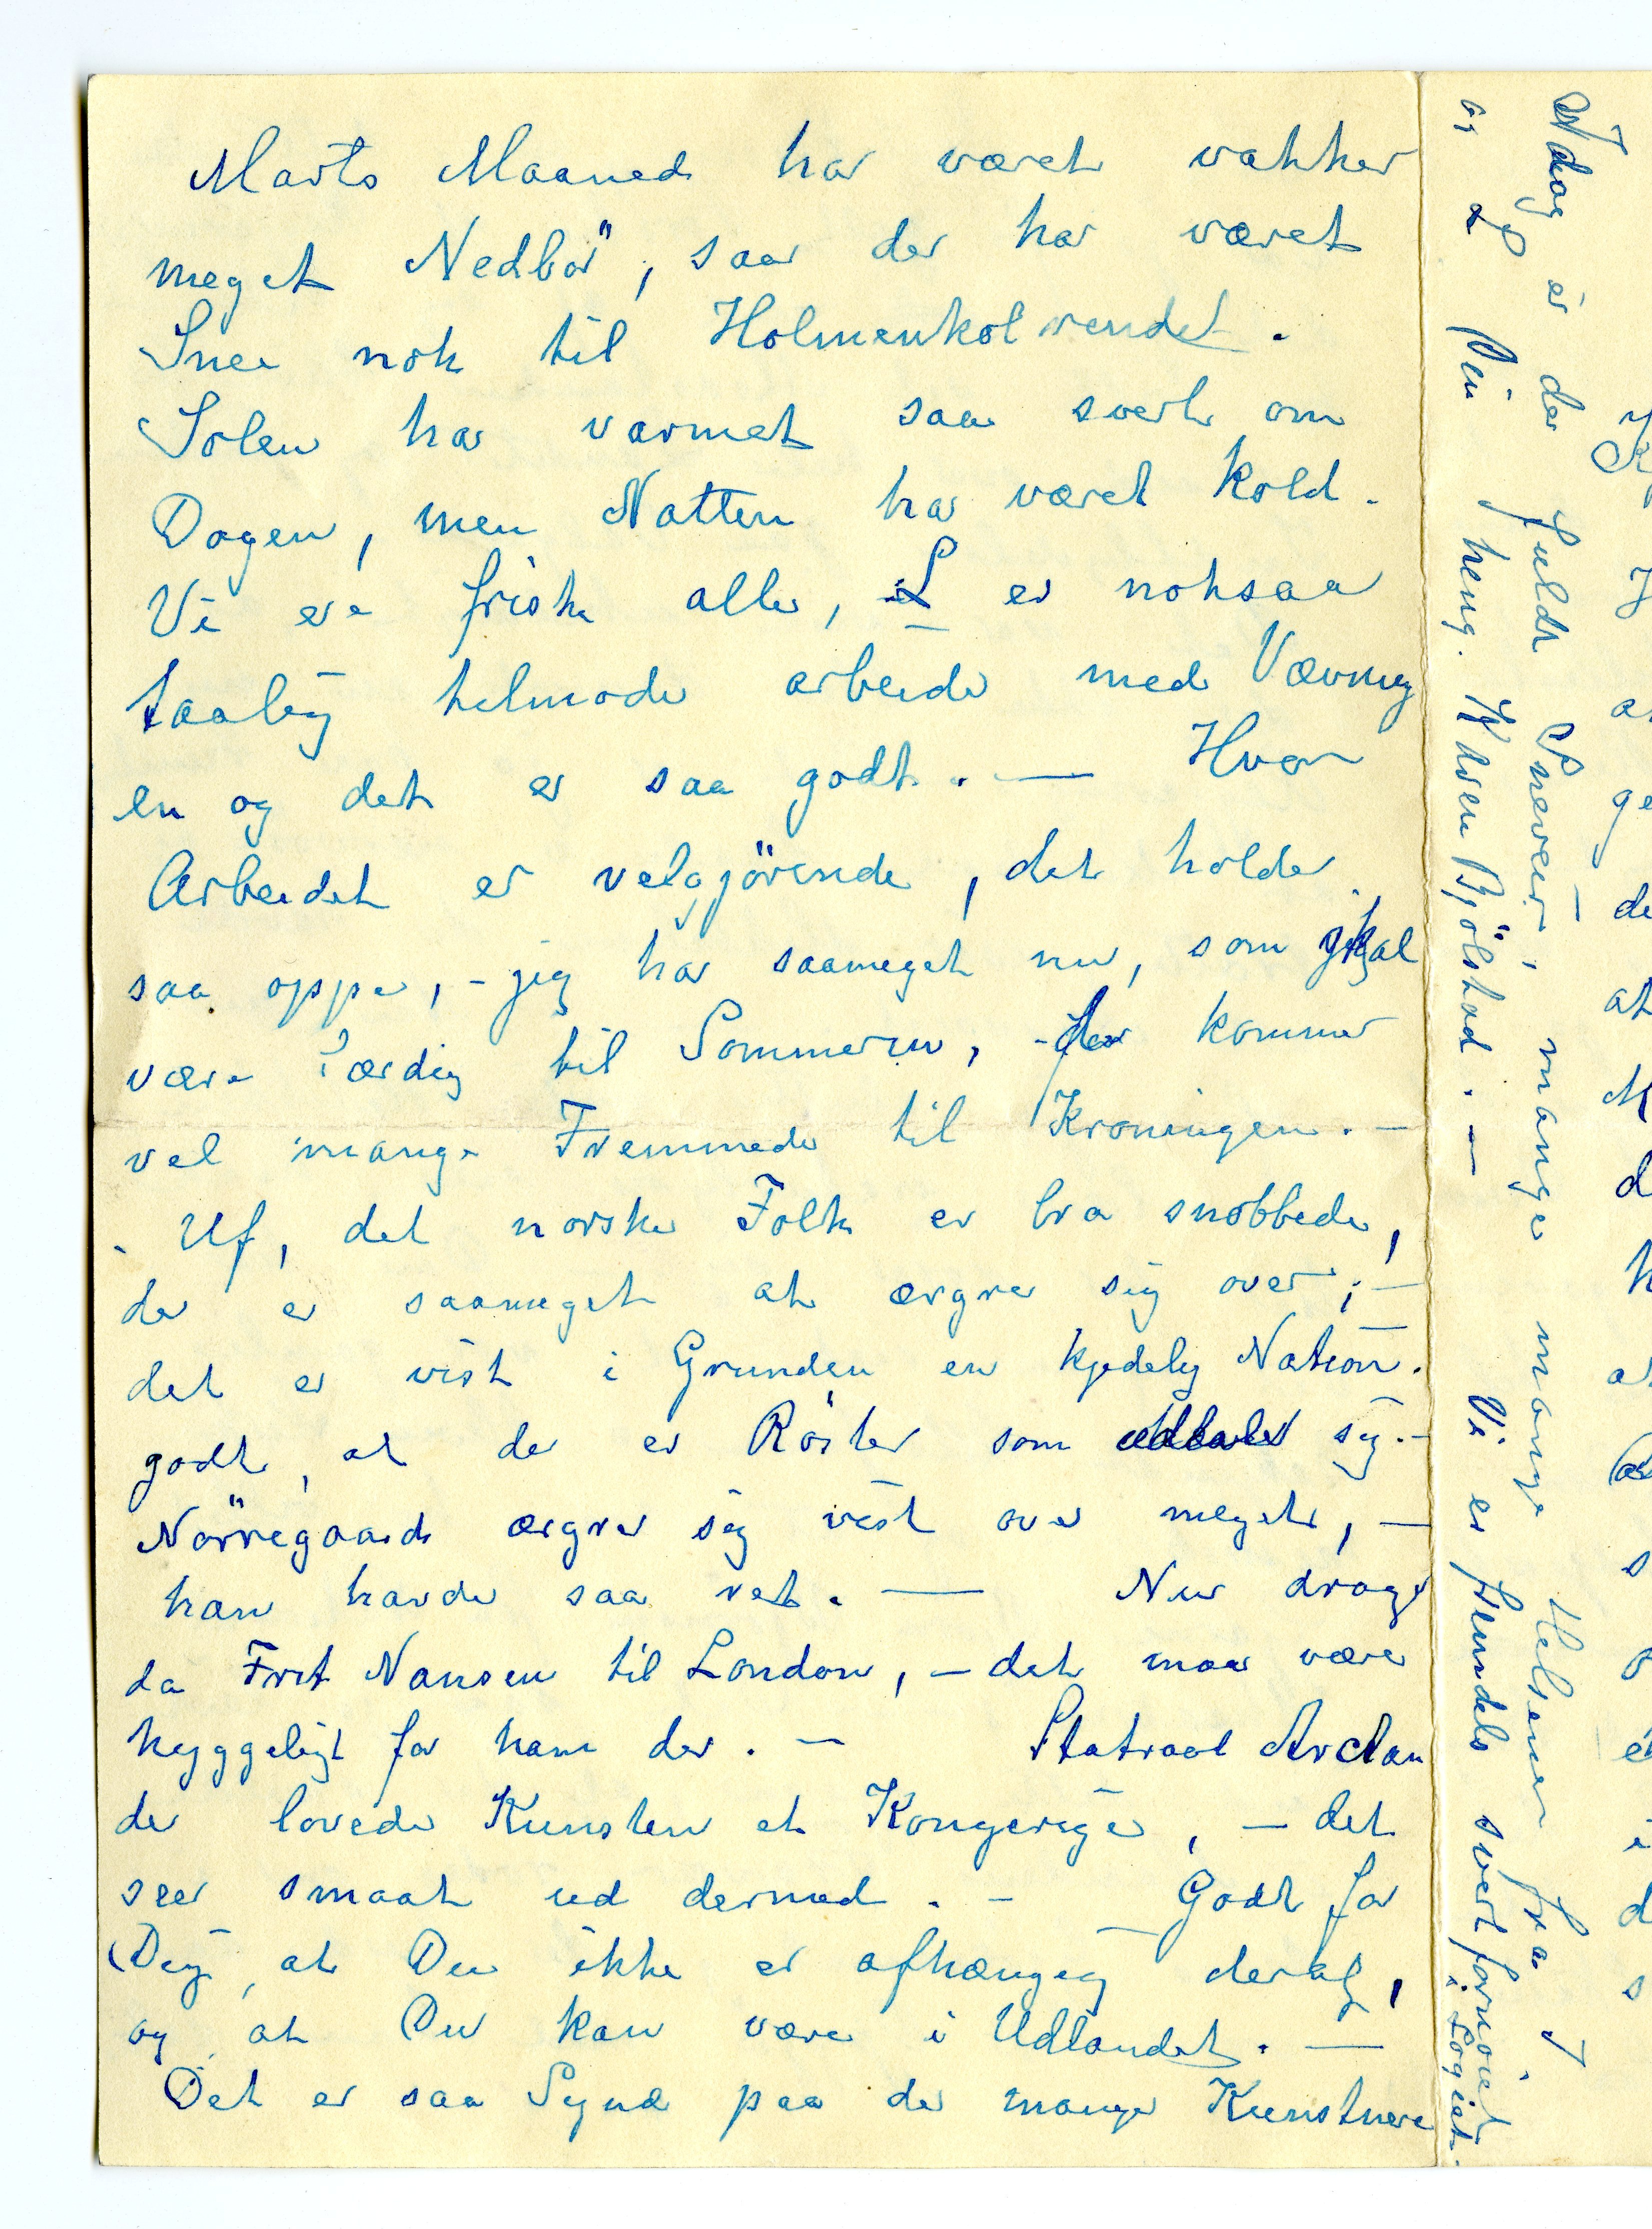 Marts Maaned har været vakker
meget Nedbör, saa der har været
Snee nok til Holmenkolrendet.
Solen har varmet saa svert om
Dagen, men Natten har været kold.
Vi ere friske alle, L er noksaa
taalig telmode arbeide med Vævnng
en og det er saa godt. — Hvor
Arbeidet er velgjörende, det holder
saa oppe, - jeg har saameget nu, som skal
være færdig til Sommeren, - der kommer
vel mange Fremmede til Kroningen. —
Uf, det norske Folk er bra snobbede,
der er saameget at ærgre sig over; —
det er vist i Grunden en kjedelig Nation.
godt, at der er Röster som udtaler sig. -
Nörregaard ærgrer sig vist over meget, —
han havde saa ret. — Nu drager
da Frit Nansen til London, — det maa være
hyggeligt for ham der. — Statraad Arctan
der lovede Kunsten et Kongerige, — det
seer smaat ud dermed. — Godt for
Dig, at Du ikke er afhængig deraf,
og at Du kan være i Udlandet. —
Det er saa Synd paa de mange Kunstnere
Idag er der fuldt Sneveir, mange mange Helsener fra L
og Din heng. Karen Bjölstad. — Vi er fremdeles svert fornöiet
i Logiet.